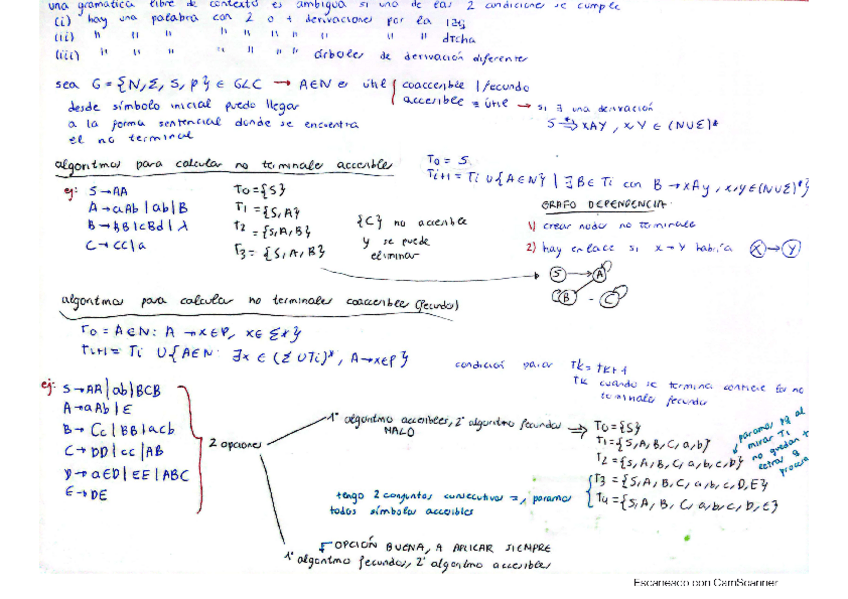 una gramatica libre de contexto es ambigua si una de las 2 condiciones se cumple
(i) hay una palabra con 2 o + derivaciones por la izq
(ii) " " " " " " " " " " dtcha
(iii) " " " " " " " árboles de derivación diferentes
sea G = {N, Σ, S, P} ∈ GLC → A∈N es útil { coaccesible / fecundo
accesible = útil → si ∃ una derivación
desde símbolo inicial puedo llegar
a la forma sentencial donde se encuentra
el no terminal
S ⇒* xAy, x,y ∈ (N∪Σ)*
algoritmos para calcular no terminales accesibles
T0 = S
Ti+1 = Ti ∪ {A∈N} | ∃ B∈ Ti con B → xAy, x,y∈(N∪Σ)*}
ej: S→AA
A→aAb|ab|B
B→bB|cBd|λ
C→cc|a
T0={S}
T1={S,A}
T2={S,A,B}
T3={S,A,B}
{C} no accesible
y se puede
eliminar
GRAFO DEPENDENCIA
1) crear nodos no terminales
2) hay enlace si x→Y habría X→Y
S A
B - C
algoritmos para calcular no terminales coaccesibles (fecundos)
T0 = A∈N: A →x∈P, x∈ Σ*}
Ti+1= Ti ∪{A∈N: ∃x ∈ (Σ ∪Ti)*, A→x∈P}
condición parar Tk=Tk+1
Tk cuando se termina contiene los no
terminales fecundos
ej: S→AA|ab|BCB
A→aAb|E
B→Cc|BB|acb
C→DD|cc|AB
D→aED|EE|ABC
E→DE
2 opciones
1º algoritmo accesibles, 2º algoritmo fecundos
MALO
T0={S}
T1={S,A,B,C,a,b}
T2={S,A,B,C,a,b,c,D}
T3={S,A,B,C,a,b,c,D,E}
T4={S,A,B,C,a,b,c,D,E}
paramos al
mirar Ti
no quedan +
letras q
tengo 2 conjuntos consecutivos =, paramos
todos símbolos accesibles
OPCIÓN BUENA, A APLICAR SIEMPRE
1º algoritmo fecundos, 2º algoritmo accesibles
Escaneado con CamScanner